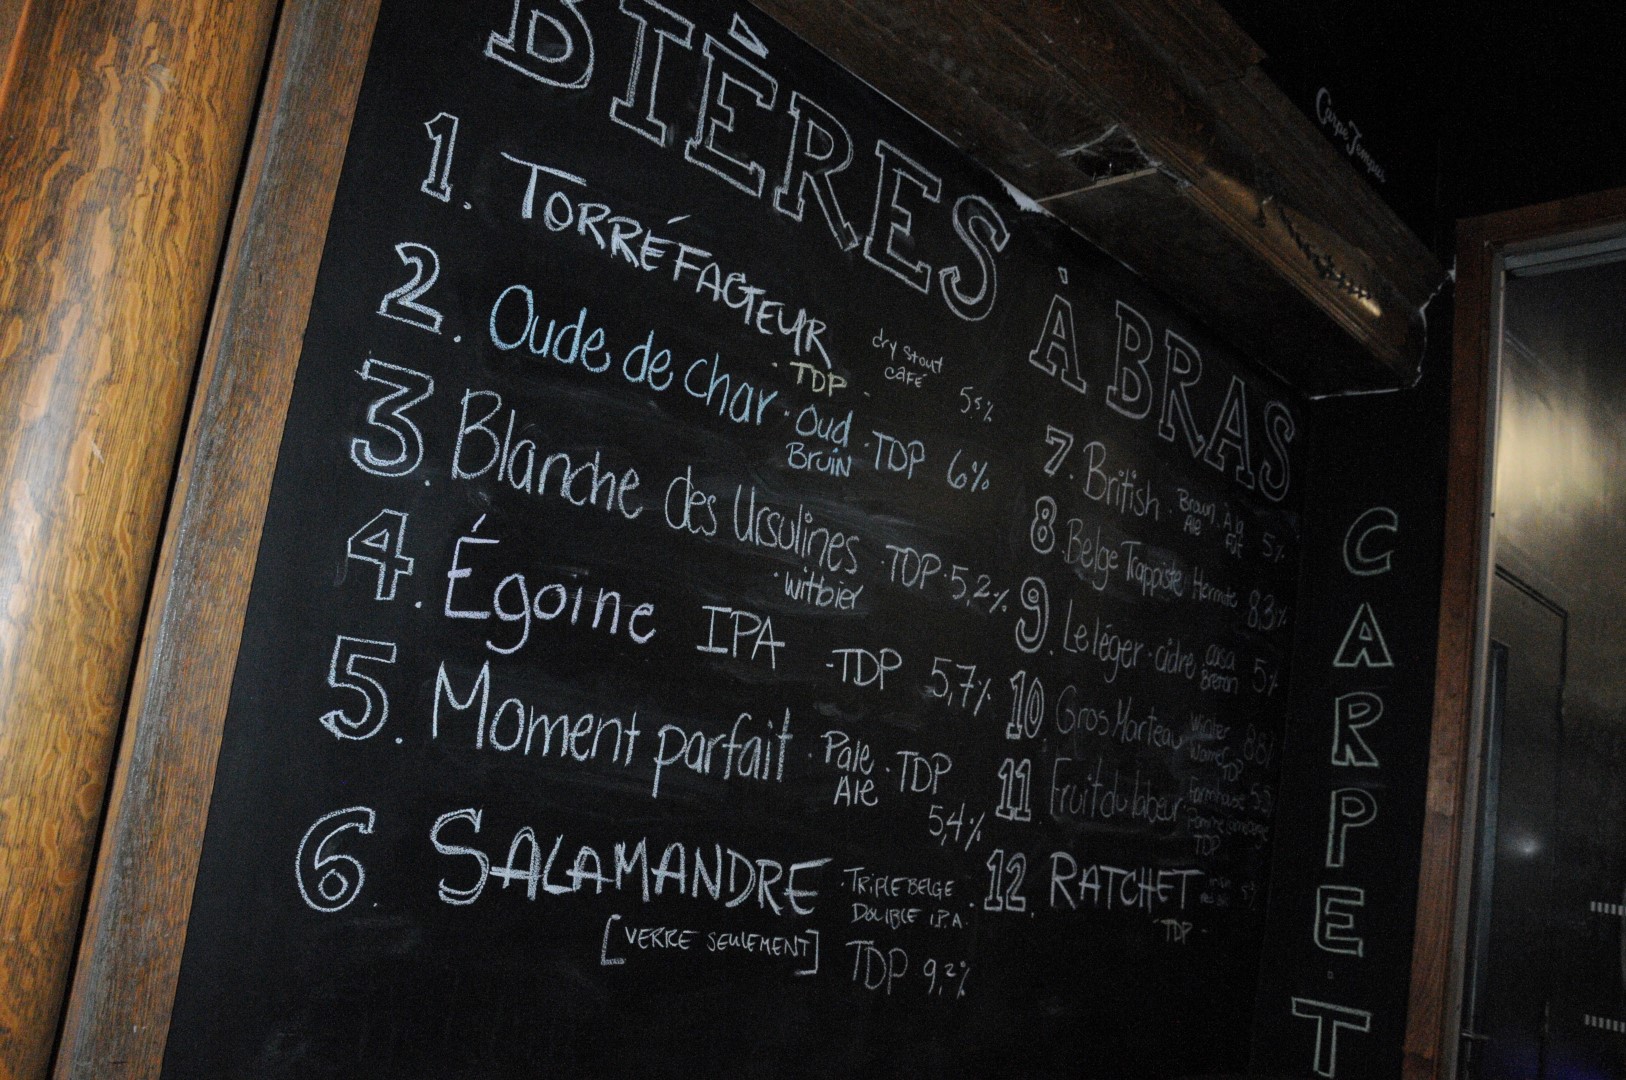 BIÈRES À BRAS
1. TORRÉFACTEUR dry stout café
· TDP · 55%
2. Oude de char · Oud Bruin · TDP 6%
3. Blanche des Ursulines · witbier · TDP · 5,2%
4. Égoïne IPA - TDP 5,7%
5. Moment parfait · Pale Ale · TDP
5,4%
6. SALAMANDRE · TRIPLE BELGE DOUBLE I.P.A.
[VERRE SEULEMENT] TDP 9,2%
7. British · Brown Ale · À la fût 5%
8. Belge Trappiste Hermite 8,3%
9. Le léger · cidre Breton 5%
10. Gros Marteau Winter Warmer TDP
11. Fruit du labeur · Farmhouse Pomme
TDP
12. RATCHET
· TDP -
Carpe Tempus
CARPE·T